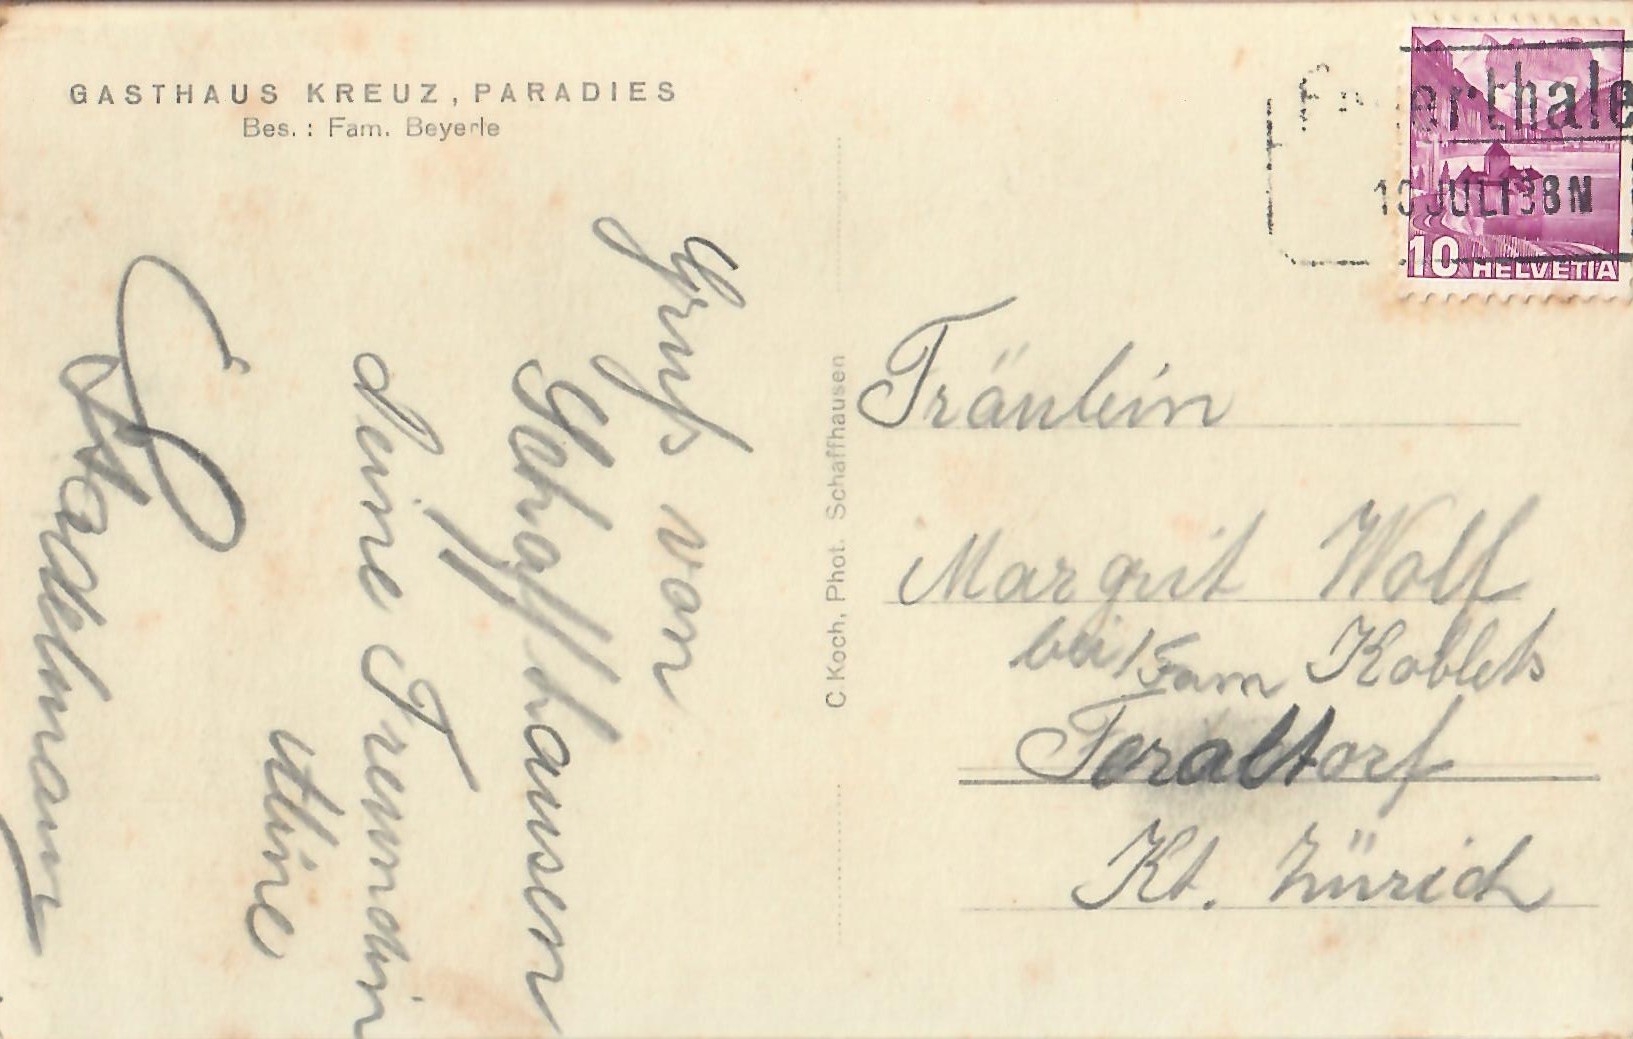 GASTHAUS KREUZ, PARADIES
Bes.: Fam. Beyerle
Gruß von
Schaffhausen
deine Freundin
Stadelmann
C Koch, Phot. Schaffhausen
erthale
JULI38N
10 HELVETIA
Fräulein
Margrit Wolf
bei Fam Koblets
Kt. Zürich